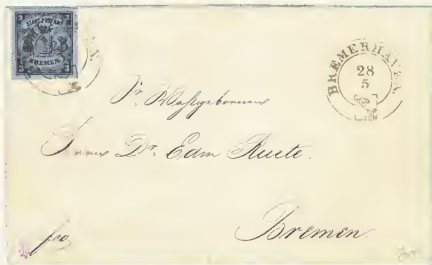 STADT POST AMT
BREMEN
BREMERHAVEN
28
5
Sr. Wohlgeboren
Herrn Dr. Edm Ruete.
Bremen.
fco